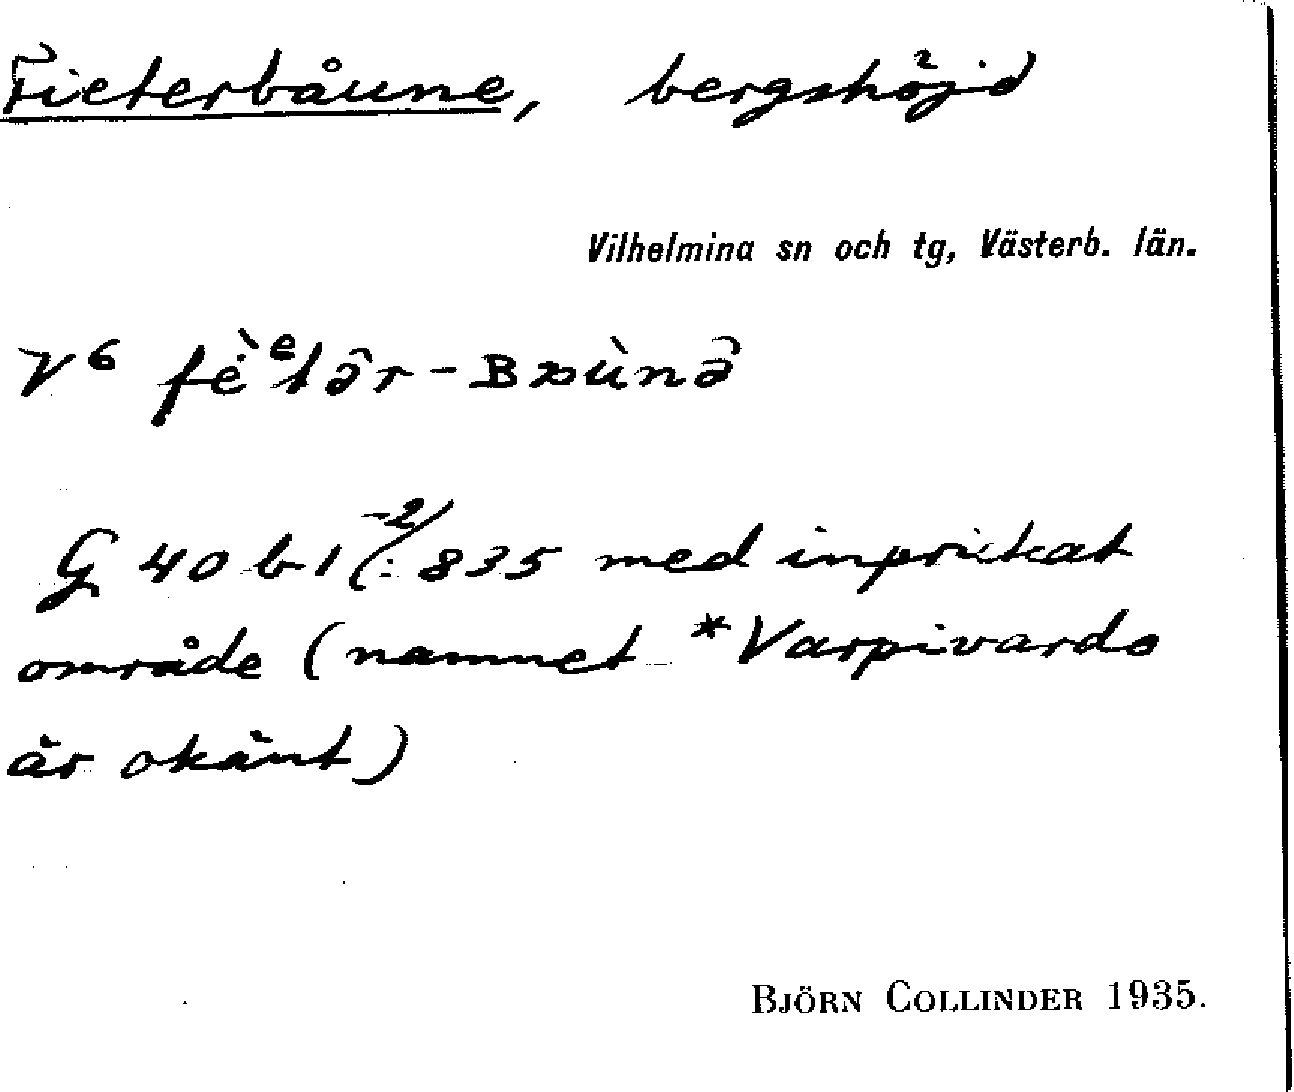 Fieterbåune, bergshöjd
Vilhelmina sn och tg, Västerb. län.
V⁶ fė̀ᵉtə̑r-Bɒùnə̑
G 40 b 1 (:⁻²/835 med inprickat
område (namnet *Varpivardo
är okänt)
BJÖRN COLLINDER 1935.